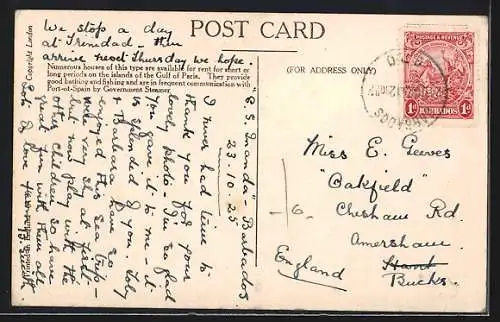 POST CARD
We stop a day
at Trinidad - then
arrive next Thursday we hope.
Numerous houses of this type are available for rent for short or
long periods on the islands of the Gulf of Paria. They provide
good bathing and fishing and are in frequent communication with
Port-of-Spain by Government Steamer
(FOR ADDRESS ONLY)
POSTAGE & REVENUE
BARBADOS
1d 1d
G.P.O.
BARBADOS
"S.S. Inanda" Barbados
23.10.25
I never had time to
thank you for your
lovely photo - I'm so glad
you gave it to me - it
is splendid of you. Toby
& Barbara have so
enjoyed this sea trip -
was very shy at first
but now play with the
other children so have
fun with them all
Love
Miss E. Geeves
"Oakfield"
Chesham Rd
Amersham
Bucks.
England
Copyright London